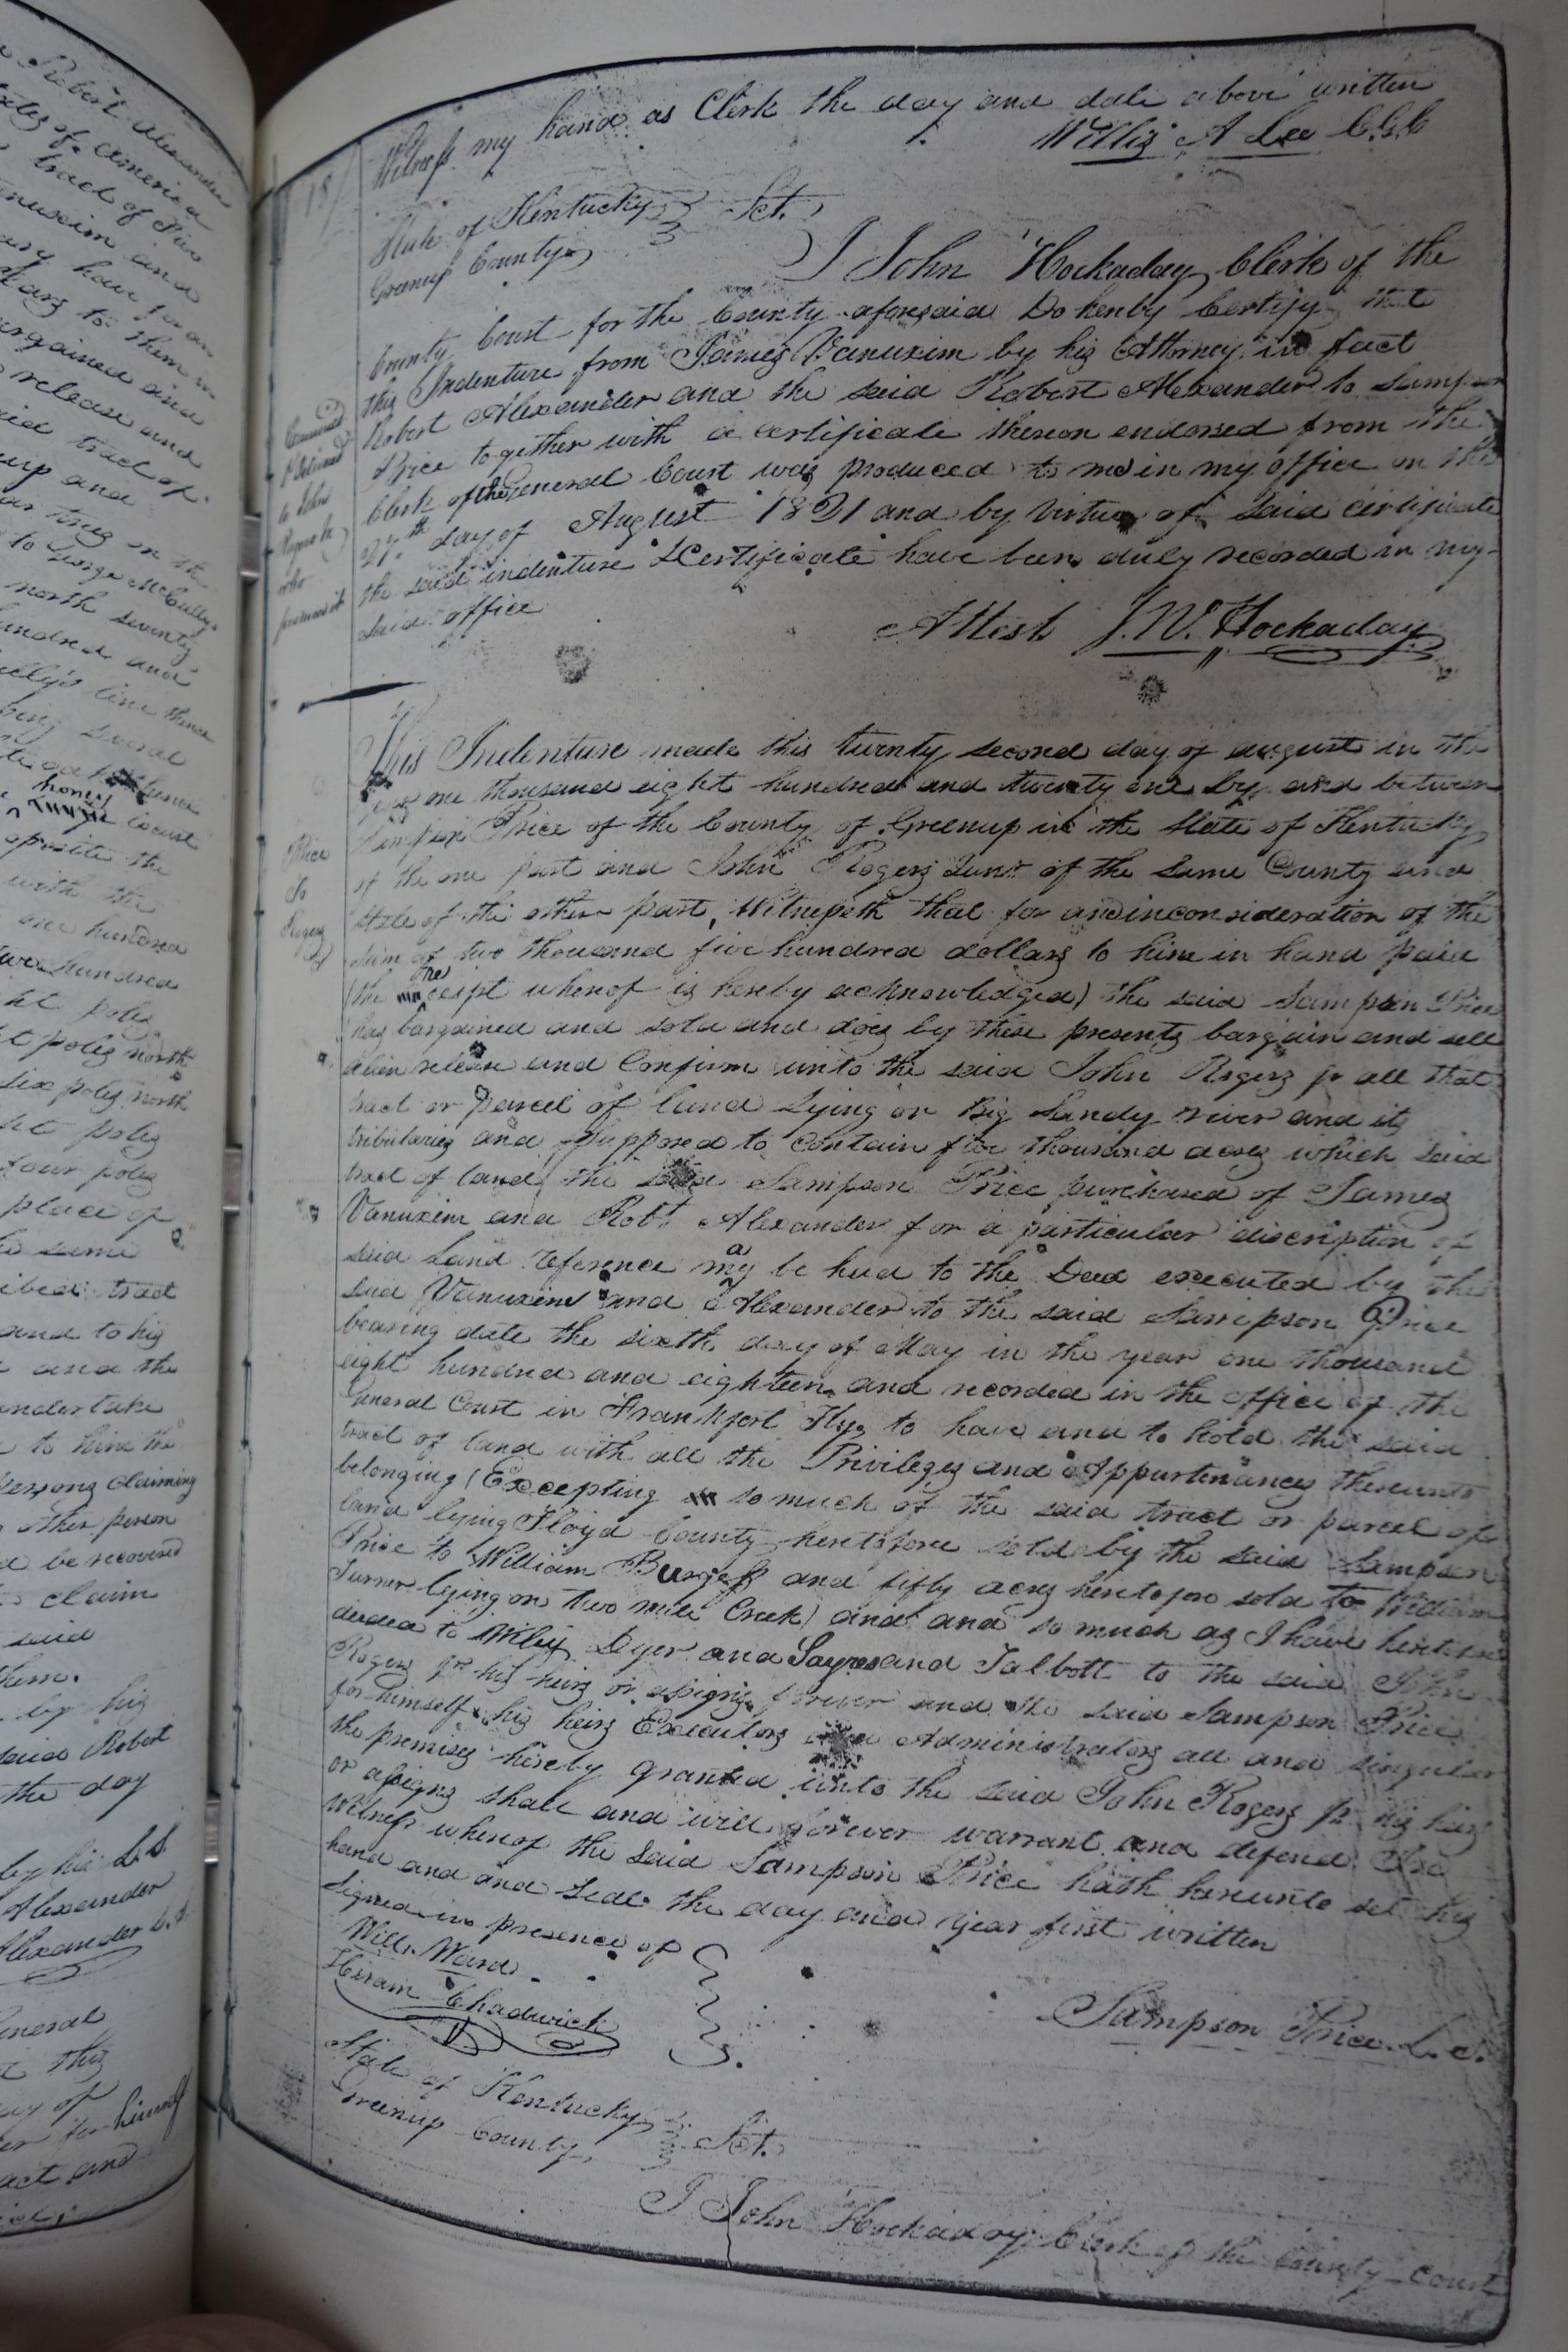 Robert Alexander
of America
tract of
Vanuxim and
have
to them
bargained and
release and
said tract of
up and
in the
to George McCully
north seventy
hundred and
line thence
being several
thence
honey
locust
opposite the
with the
one hundred
hundred
poles
poles north
six poles north
poles
four poles
place of
the same
tract
and to his
and the
undertake
to him the
persons claiming
other person
be recovered
claim
said
them.
by his
said Robert
the day
by his L.S.
Alexander
Alexander L.S.
General
this
day of
for himself
act and
18
Witness my hand as Clerk the day and date above written
Willis A Lee C.G.C
State of Kentucky Sct.
Greenup County
I John Hockaday Clerk of the
County Court for the County aforesaid Do hereby Certify that
this Indenture from James Vanuxim by his Attorney in fact
Robert Alexander and the said Robert Alexander to Sampson
Price together with a certificate thereon endorsed from the
Clerk of the General Court was produced to me in my office on the
27th day of August 1821 and by virtue of said certificate
the said indenture & Certificate have been duly recorded in my
said office
Attest J. W. Hockaday
to John
who
Price
To
Rogers
This Indenture made this twenty second day of august in the
year one thousand eight hundred and twenty one by and between
Sampson Price of the County of Greenup in the State of Kentucky
of the one part and John Rogers Junr of the same County and
state of the other part, Witnesseth that for and in consideration of the
sum of two thousand five hundred dollars to him in hand paid
(the receipt whereof is hereby acknowledged) the said Sampson Price
has bargained and sold and does by these presents bargain and sell
alien release and Confirm unto the said John Rogers jr all that
tract or parcel of land Lying on Big Sandy river and its
tributaries and supposed to contain five thousand acres which said
tract of land the said Sampson Price purchased of James
Vanuxim and Robt Alexander for a particular discription of
said Land reference may be had to the Deed executed by the
said Vanuxim and Alexander to the said Sampson Price
bearing date the sixth day of May in the year one thousand
eight hundred and eighteen and recorded in the office of the
General Court in Frankfort Ky, to have and to hold the said
tract of land with all the Privileges and Appurtinances thereunto
belonging (Excepting so much of the said tract or parcel of
land lying Floyd County heretofore sold by the said Sampson
Price to William Burgess and fifty acres heretofore sold to William
Turner lying on two mile Creek) and and so much as I have heretofore
deeded to Wiley Dyer and Sayres and Talbott to the said John
Rogers Jr his heirs or assigns forever and the said Sampson Price
for himself his heirs Executors and Administrators all and singular
the premises hereby granted unto the said John Rogers Jr his heirs
or assigns shall and will forever warrant and defend In
Witness whereof the said Sampson Price hath hereunto set his
hand and and seal the day and year first written
Signed in presence of
Will. Ward
Hiram Chadwick
Sampson Price L.S.
State of Kentucky Sct.
Greenup County
I John Hockaday Clerk of the County Court